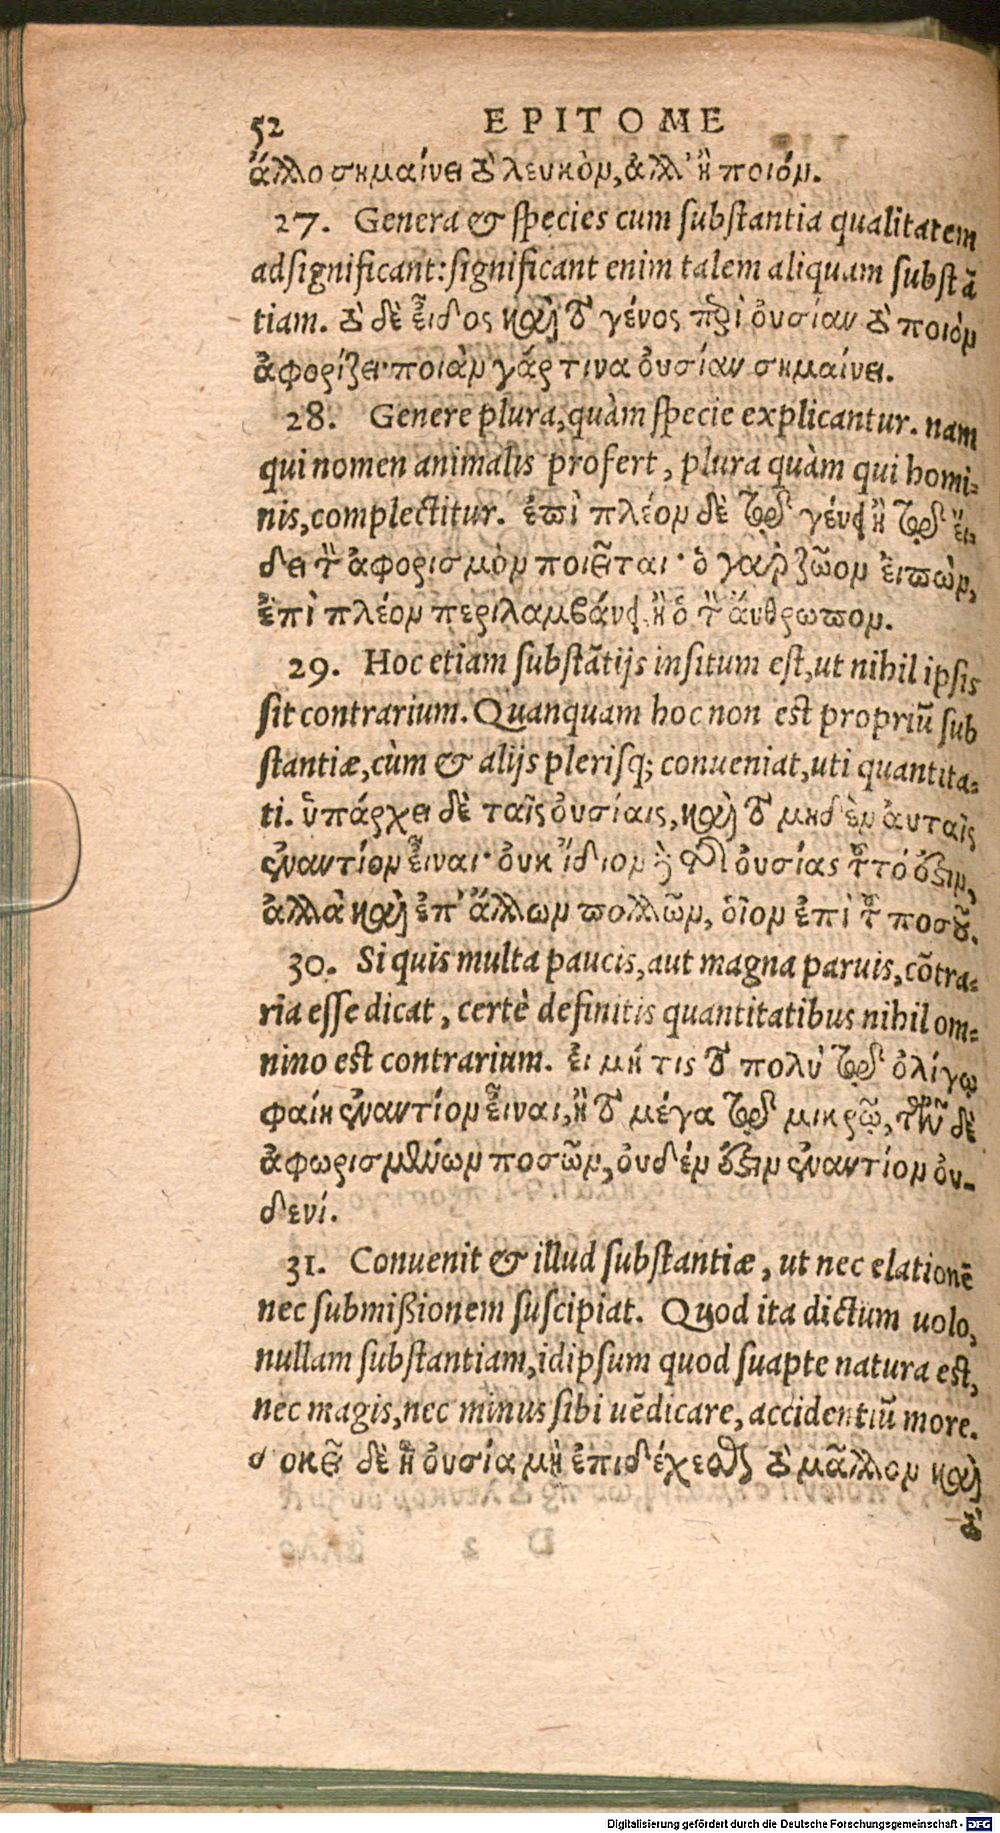 52 EPITOME
ἄλλο σημαίνει τὸ λευκὸν, ἀλλ' ἢ ποιόν.
27. Genera & species cum substantia qualitatem
adsignificant: significant enim talem aliquam substā
tiam. τὸ δὲ εἶδος καὶ τὸ γένος περὶ οὐσίαν τὸ ποιὸν
ἀφορίζει· ποιὰν γάρ τινα οὐσίαν σημαίνει.
28. Genere plura, quàm specie explicantur. nam
qui nomen animalis profert, plura quàm qui homi-
nis, complectitur. ἐπὶ πλέον δὲ τῷ γένει ἢ τῷ εἴ-
δει τὸν ἀφορισμὸν ποιεῖται· ὁ γὰρ ζῶον εἰπὼν,
ἐπὶ πλέον περιλαμβάνει, ἢ ὁ τὸν ἄνθρωπον.
29. Hoc etiam substātijs insitum est, ut nihil ipsis
sit contrarium. Quanquam hoc non est propriū sub
stantiæ, cùm & alijs plerisq; conueniat, uti quantita-
ti. ὑπάρχει δὲ ταῖς οὐσίαις, καὶ τὸ μηδὲν αὐταῖς
ἐναντίον εἶναι· οὐκ ἴδιον δὲ τῆς οὐσίας τοῦτό ἐστιν,
ἀλλὰ καὶ ἐπ' ἄλλων πολλῶν, οἷον ἐπὶ τοῦ ποσοῦ.
30. Si quis multa paucis, aut magna paruis, cōtra-
ria esse dicat, certè definitis quantitatibus nihil om-
nino est contrarium. εἰ μή τις τὸ πολὺ τῷ ὀλίγῳ
φαίη ἐναντίον εἶναι, ἢ τὸ μέγα τῷ μικρῷ, τῶν δὲ
ἀφωρισμένων ποσῶν, οὐδέν ἐστιν ἐναντίον οὐ-
δενί.
31. Conuenit & illud substantiæ, ut nec elationē
nec submißionem suscipiat. Quod ita dictum uolo,
nullam substantiam, idipsum quod suapte natura est,
nec magis, nec minus sibi uēdicare, accidentiū more.
δοκεῖ δὲ ἡ οὐσία μὴ ἐπιδέχεσθαι τὸ μᾶλλον καὶ
τὸ
Digitalisierung gefördert durch die Deutsche Forschungsgemeinschaft - DFG